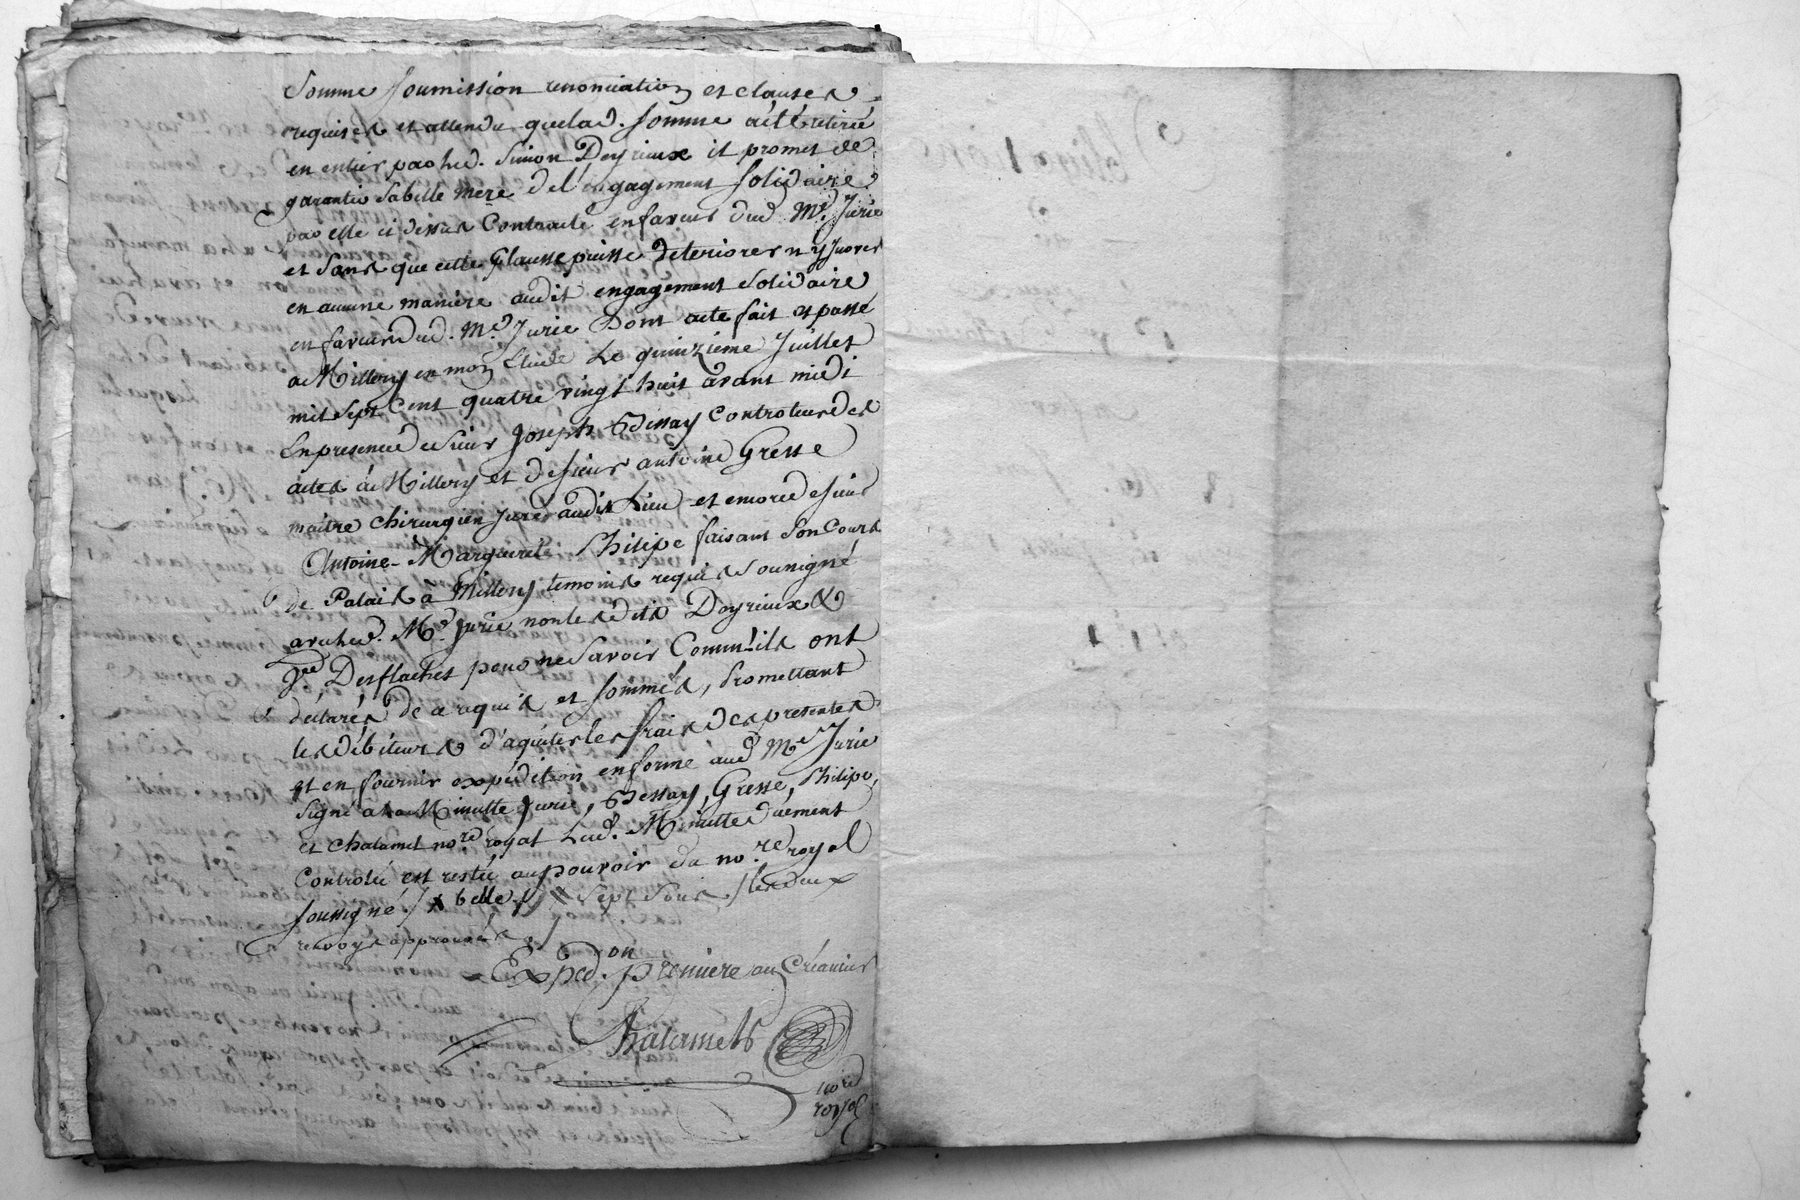 Somme soumission renonciation et clauses
requises et attendu quelad. somme a été retirée
en entier par led. Simon Deyrieux il promet de
garantir sa belle mere de l'engagement solidaire
par elle ci dessus Contracté en faveur dud Me. Jurie
et sans que cette Clausse puisse deteriorer n'y
en aucune manière audit engagement Solidaire
en faveur dud. Me. Jurie Dont acte fait et passé
a Millery en mon Etude Le quinzieme Juillet
mil sept Cent quatre vingt huit avant midi
En presence de Sieur Joseph Dessay Controleur des
actes à Millery et de sieur antoine Gresse
maître chirurgien juré audit Lieu et encore de sieur
Antoine-Marguerite Philipe faisant Son Cours
de Palais à Millery temoins requis Sousigné
avec led. Me. Jurie non lesdits Deyrieux &
Desflaches pour ne Savoir Comm'ils ont
déclarés de ce requis et sommés, Promettant
les débiteurs d'aquiter les frais des presentes
et en fournir expédition en forme aud Me Jurie
Signé a la Minutte Jurie, Dessay, Gresse, Philipe,
et Chalamel nore royal Lad. Minutte duement
Controlée est restée au pouvoir du no.re royal
soussigné / x belle / x Sept Sous / les deux
renvoys approuvés /
Exped.on premiere au Créancier
Chalamel
nore
royal